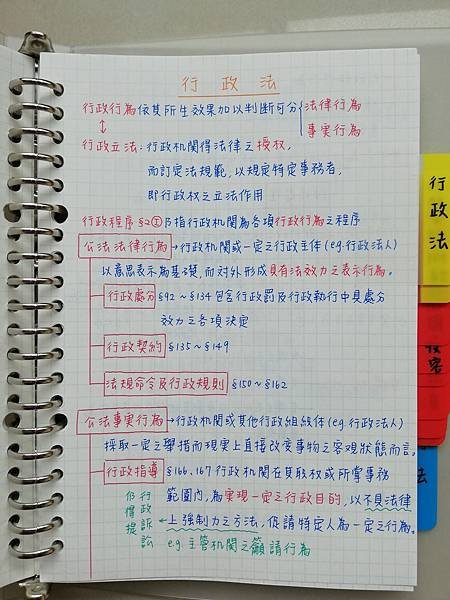 行政法
行政行為依其所生效果加以判斷可分 法律行為
↕ 事實行為
行政立法:行政機關得法律之授權,
而訂定法規範,以規定特定事務者,
即行政權之立法作用
行政程序§2① 乃指行政機關為各項行政行為之程序
公法法律行為→行政機關或一定之行政主體(e.g.行政法人)
以意思表示為基礎,而對外形成具有法效力之表示行為。
行政處分 §92~§134包含行政罰及行政執行中具處分
效力之各項決定
行政契約 §135~§149
法規命令及行政規則 §150~§162
公法事實行為→行政機關或其他行政組織体(e.g.行政法人)
採取一定之舉措而現實上直接改變事物之客觀狀態而言。
行政指導 §166、167行政機關在其職權或所掌事務
範圍內,為實現一定之行政目的,以不具法律
上強制力之方法,促請特定人為一定之行為。
e.g.主管機關之籲請行為
仍得提
行政訴訟
行政法
法